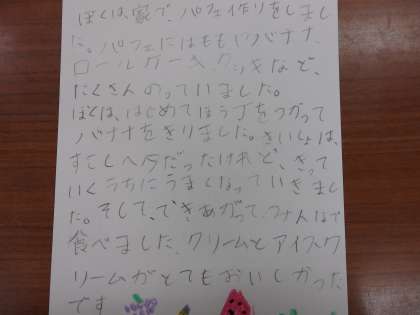 ぼくは、家で、パフェ作りをしまし
た。パフェにはももやバナナ、
ロールケーキ、クッキーなど、
たくさんのっていました。
ぼくは、はじめてほう丁をつかって
バナナをきりました。さいしょは、
すこしへただったけれど、きって
いくうちにうまくなっていきまし
た。そして、できあがって、みんなで
食べました。クリームとアイスク
リームがとてもおいしかった
です